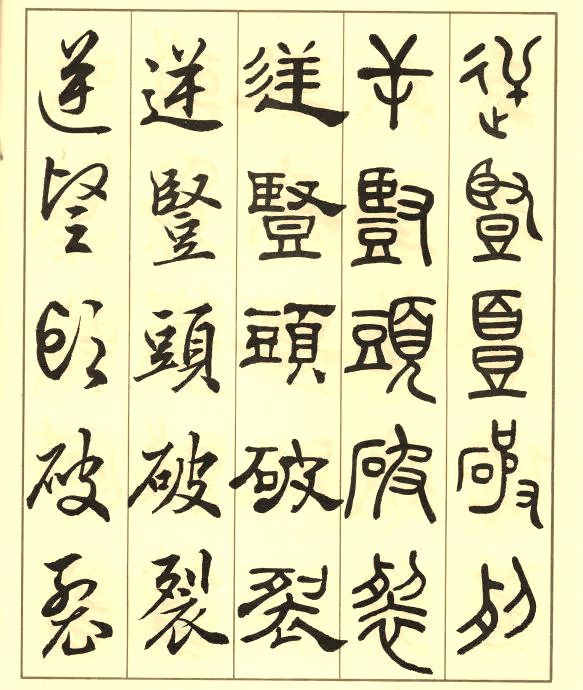 逆豎頭破裂
屰豎頭破裂
逆豎頭破裂
逆豎頭破裂
逆豎頭破裂